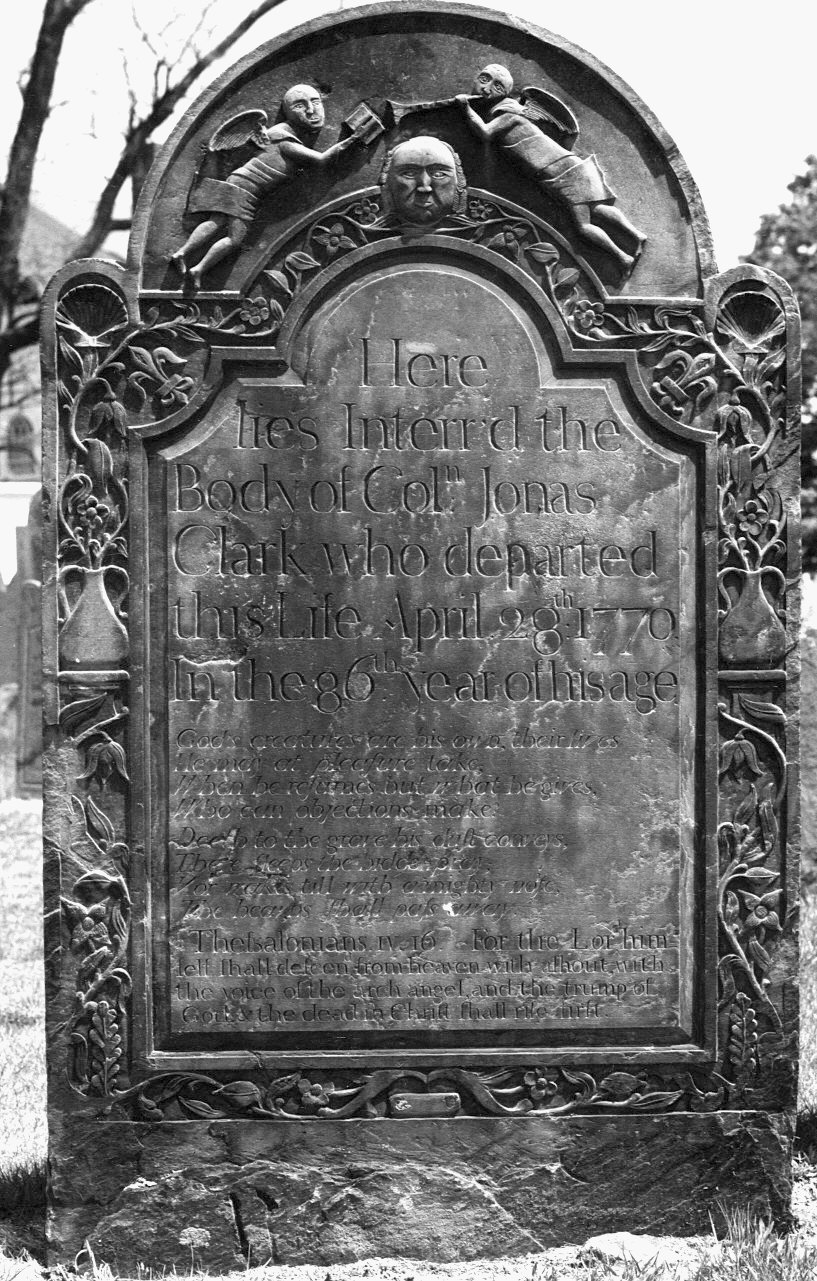 Here
lies Interr'd the
Body of Colⁿ. Jonas
Clark who departed
this Life April 28th 1770
In the 86th year of his age
God's creatures are his own, their lives
He may at pleasure take,
When he resumes but what he gives,
Who can objections make.
Death to the grave his dust conveys,
There sleeps the
till with almighty
The heav'ns ſhall paſs away.
Theſsalonians. IV. 16 For the Lor'him
ſelf ſhall deſcen from heaven with aſhout, with
the voice of the arch angel, and the trump of
God: & the dead in Chriſt ſhall riſe firſt.